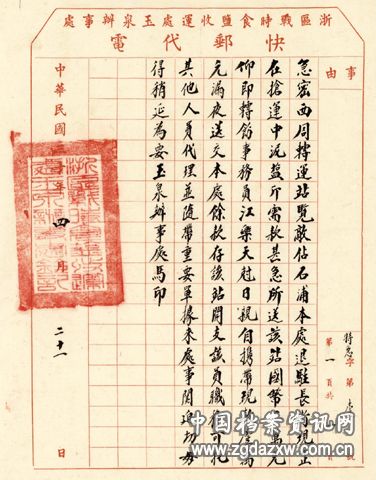 浙區戰時食鹽收運處玉泉辦事處
快郵代電
事由
特急字第
第一頁共
急宏西周轉運站覽敵佔石浦本處退駐長街現正
在搶運中泥鹽卯需款甚急所送該站國幣萬元
仰即轉飭事務員江樂天尅日親自攜帶現
元漏夜送交本處餘款存該站開支該員職務可托
其他人員代理並隨帶重要單據來處事關迫切毋
得稍延為妥玉泉辦事處馬印
中華民國三十年四月二十一日
中国档案资讯网
www.zgdazxw.com.cn